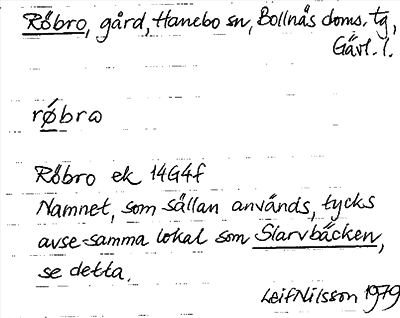 Röbro, gård, Hanebo sn, Bollnäs doms. tg,
Gävl. l.
rǿbrω
Röbro ek 14G4f
Namnet, som sällan används, tycks
avse samma lokal som Slarvbäcken,
se detta.
Leif Nilsson 1979